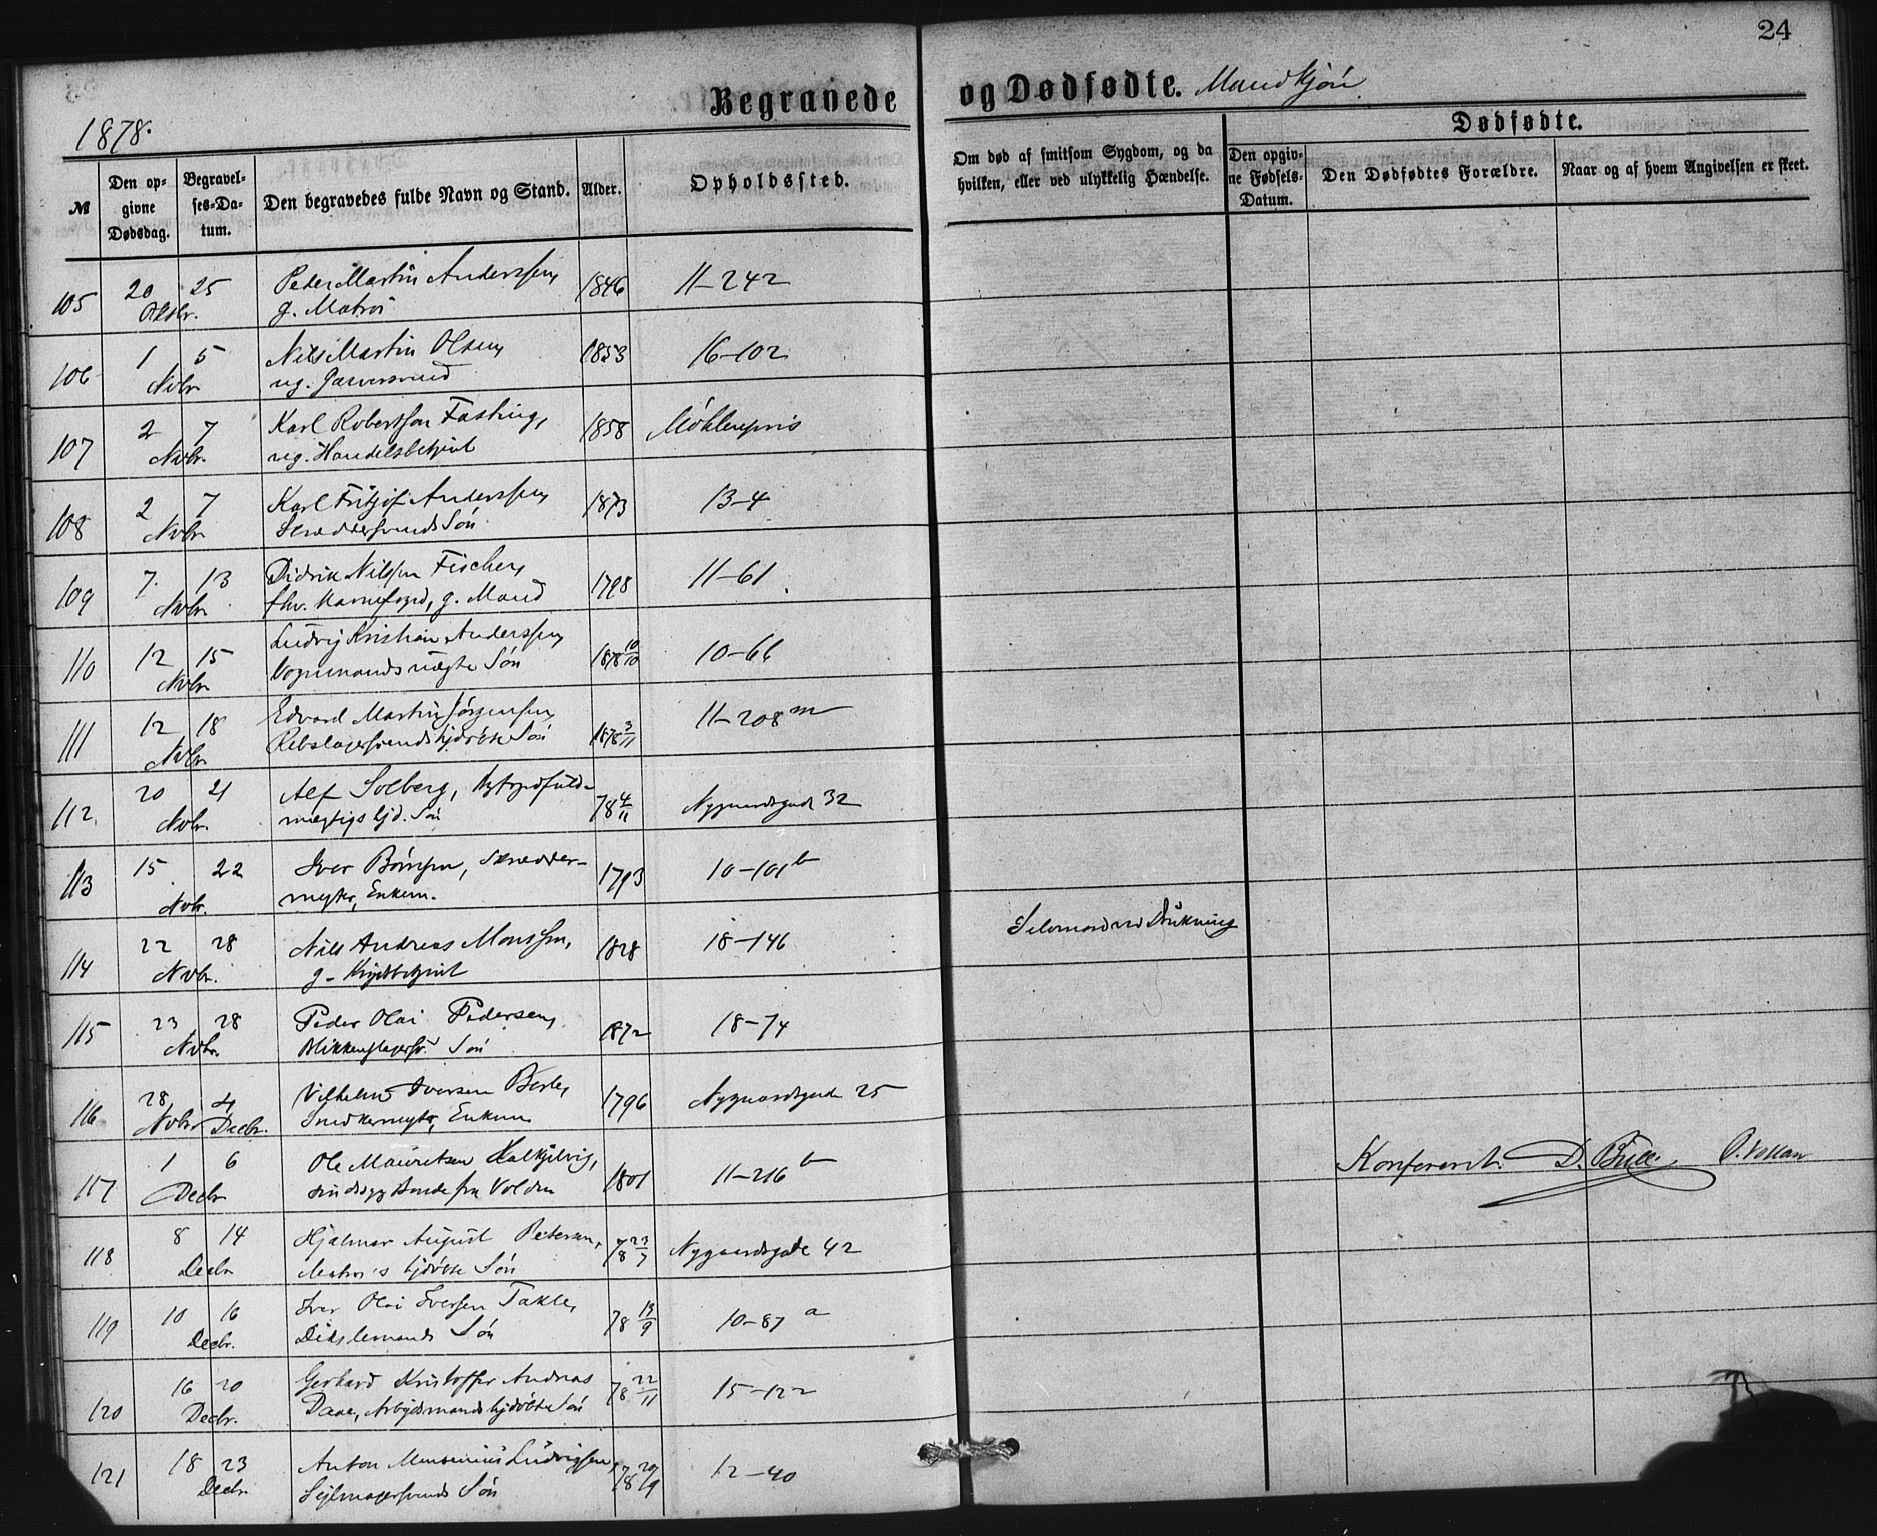 24
Begravede og Dødfødte. Mandkjøn
1878.
№
Den opgivne Dødsdag.
Begravelses-Datum.
Den begravedes fulde Navn og Stand.
Alder.
Opholdssted.
Om død af smitsom Sygdom, og da hvilken, eller ved ulykkelig Hændelse.
Dødfødte.
Den opgivne Fødsels-Datum.
Den Dødfødtes Forældre.
Naar og af hvem Angivelsen er skeet.
105 20 25 Peder Martin Anderssen, 1846 11-242
Oktbr. g. Matros
106 1 5 Nils Martin Olsen, 1853 16-102
Nvbr ug. Garversvend
107 2 7 Karl Robertson Fasting, 1858 Møhlenpris
Nvbr. ug. Handelsbetjent
108 2 7 Karl Fritjof Anderssen, 1873 13-4
Nvbr Skræddersvends Søn
109 7. 13 Didrik Nilssen Fischer, 1798 11-61
Nvbr. fhv. Havnefoged, g. Mand
110 12 15 Ludvig Kristian Anderssen, 1878 10/10 10-66
Nvbr Vognmands uægte Søn
111 12 18 Edvard Martin Jörgensen, 1878 3/11 11-208 m
Nvbr Rebslagersvends hjdöbte Søn
112. 20 21 Alf Solberg, Byfogedfuld- 78 4/11 Nygaardsgade 32
Nvbr. mægtigs hjd. Søn
113 15 22 Iver Börresen, Skrædder- 1793 10-101 b
Nvbr. mester, Enkem.
114 22 28 Nils Andreas Monssen, 1828 18-146 Selvmord ved Drukning
Nvbr. g. Krydsbetjent
115 23 28 Peder Olai Pedersen, 1872 18-74
Nvbr. Blikkenslagersv. Søn
116 28 4 Vilhelm Iversen Berle, 1796 Nygaardsgade 25
Nvbr Decbr. Snedkermester, Enkem.
117 1 6 Ole Mauritsen Kalkjelvig, 1801 11-216 b
Decbr sindssyg Bonde fra Volden
Konfereret. D. Bull.
118 8 14 Hjalmar August Petersen, 78 23/7 Nygaardsgade 42
Decbr Matros's hjdöbte Søn
119 10 16 Iver Olai Iversen Takle, 78 19/9 10-87 a
Decbr. Dikslemands Søn
120 16 20 Gerhard Kristoffer Andreas 78 22/11 15-122
Decbr. Daae, Arbejdsmands hjdöbte Søn
121 18 23 Anton Monsenius Ludvigsen, 78 20/9 12-40
Decbr Sejlmagersvends Søn